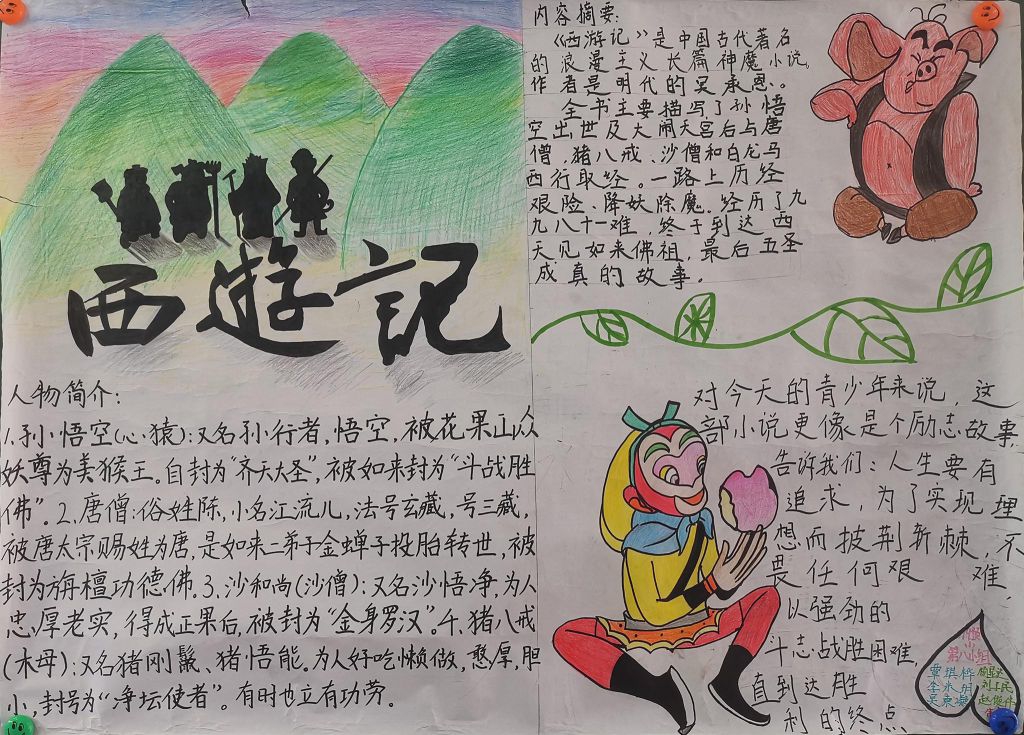 西遊記
人物简介:
1.孙悟空(心猿):又名孙行者,悟空,被花果山众
妖尊为美猴王。自封为“齐天大圣”,被如来封为“斗战胜
佛”。2.唐僧:俗姓陈,小名江流儿,法号玄藏,号三藏,
被唐太宗赐姓为唐,是如来二弟子金蝉子投胎转世,被
封为旃檀功德佛。3.沙和尚(沙僧):又名沙悟净,为人
忠厚老实,得成正果后,被封为“金身罗汉”。4.猪八戒
(木母):又名猪刚鬣、猪悟能。为人好吃懒做,憨厚,胆
小,封号为“净坛使者”。有时也立有功劳。
内容摘要:
《西游记》是中国古代著名
的浪漫主义长篇神魔小说,
作者是明代的吴承恩。
全书主要描写了孙悟
空出世及大闹天宫后与唐
僧,猪八戒、沙僧和白龙马
西行取经。一路上历经
艰险、降妖除魔。经历了九
九八十一难,终于到达西
天见如来佛祖,最后五圣
成真的故事。
对今天的青少年来说,这
部小说更像是个励志故事,
告诉我们:人生要有
追求,为了实现理
想而披荆斩棘,不
畏任何艰难,
以强劲的
斗志战胜困难,
直到达胜
利的终点
第八小组